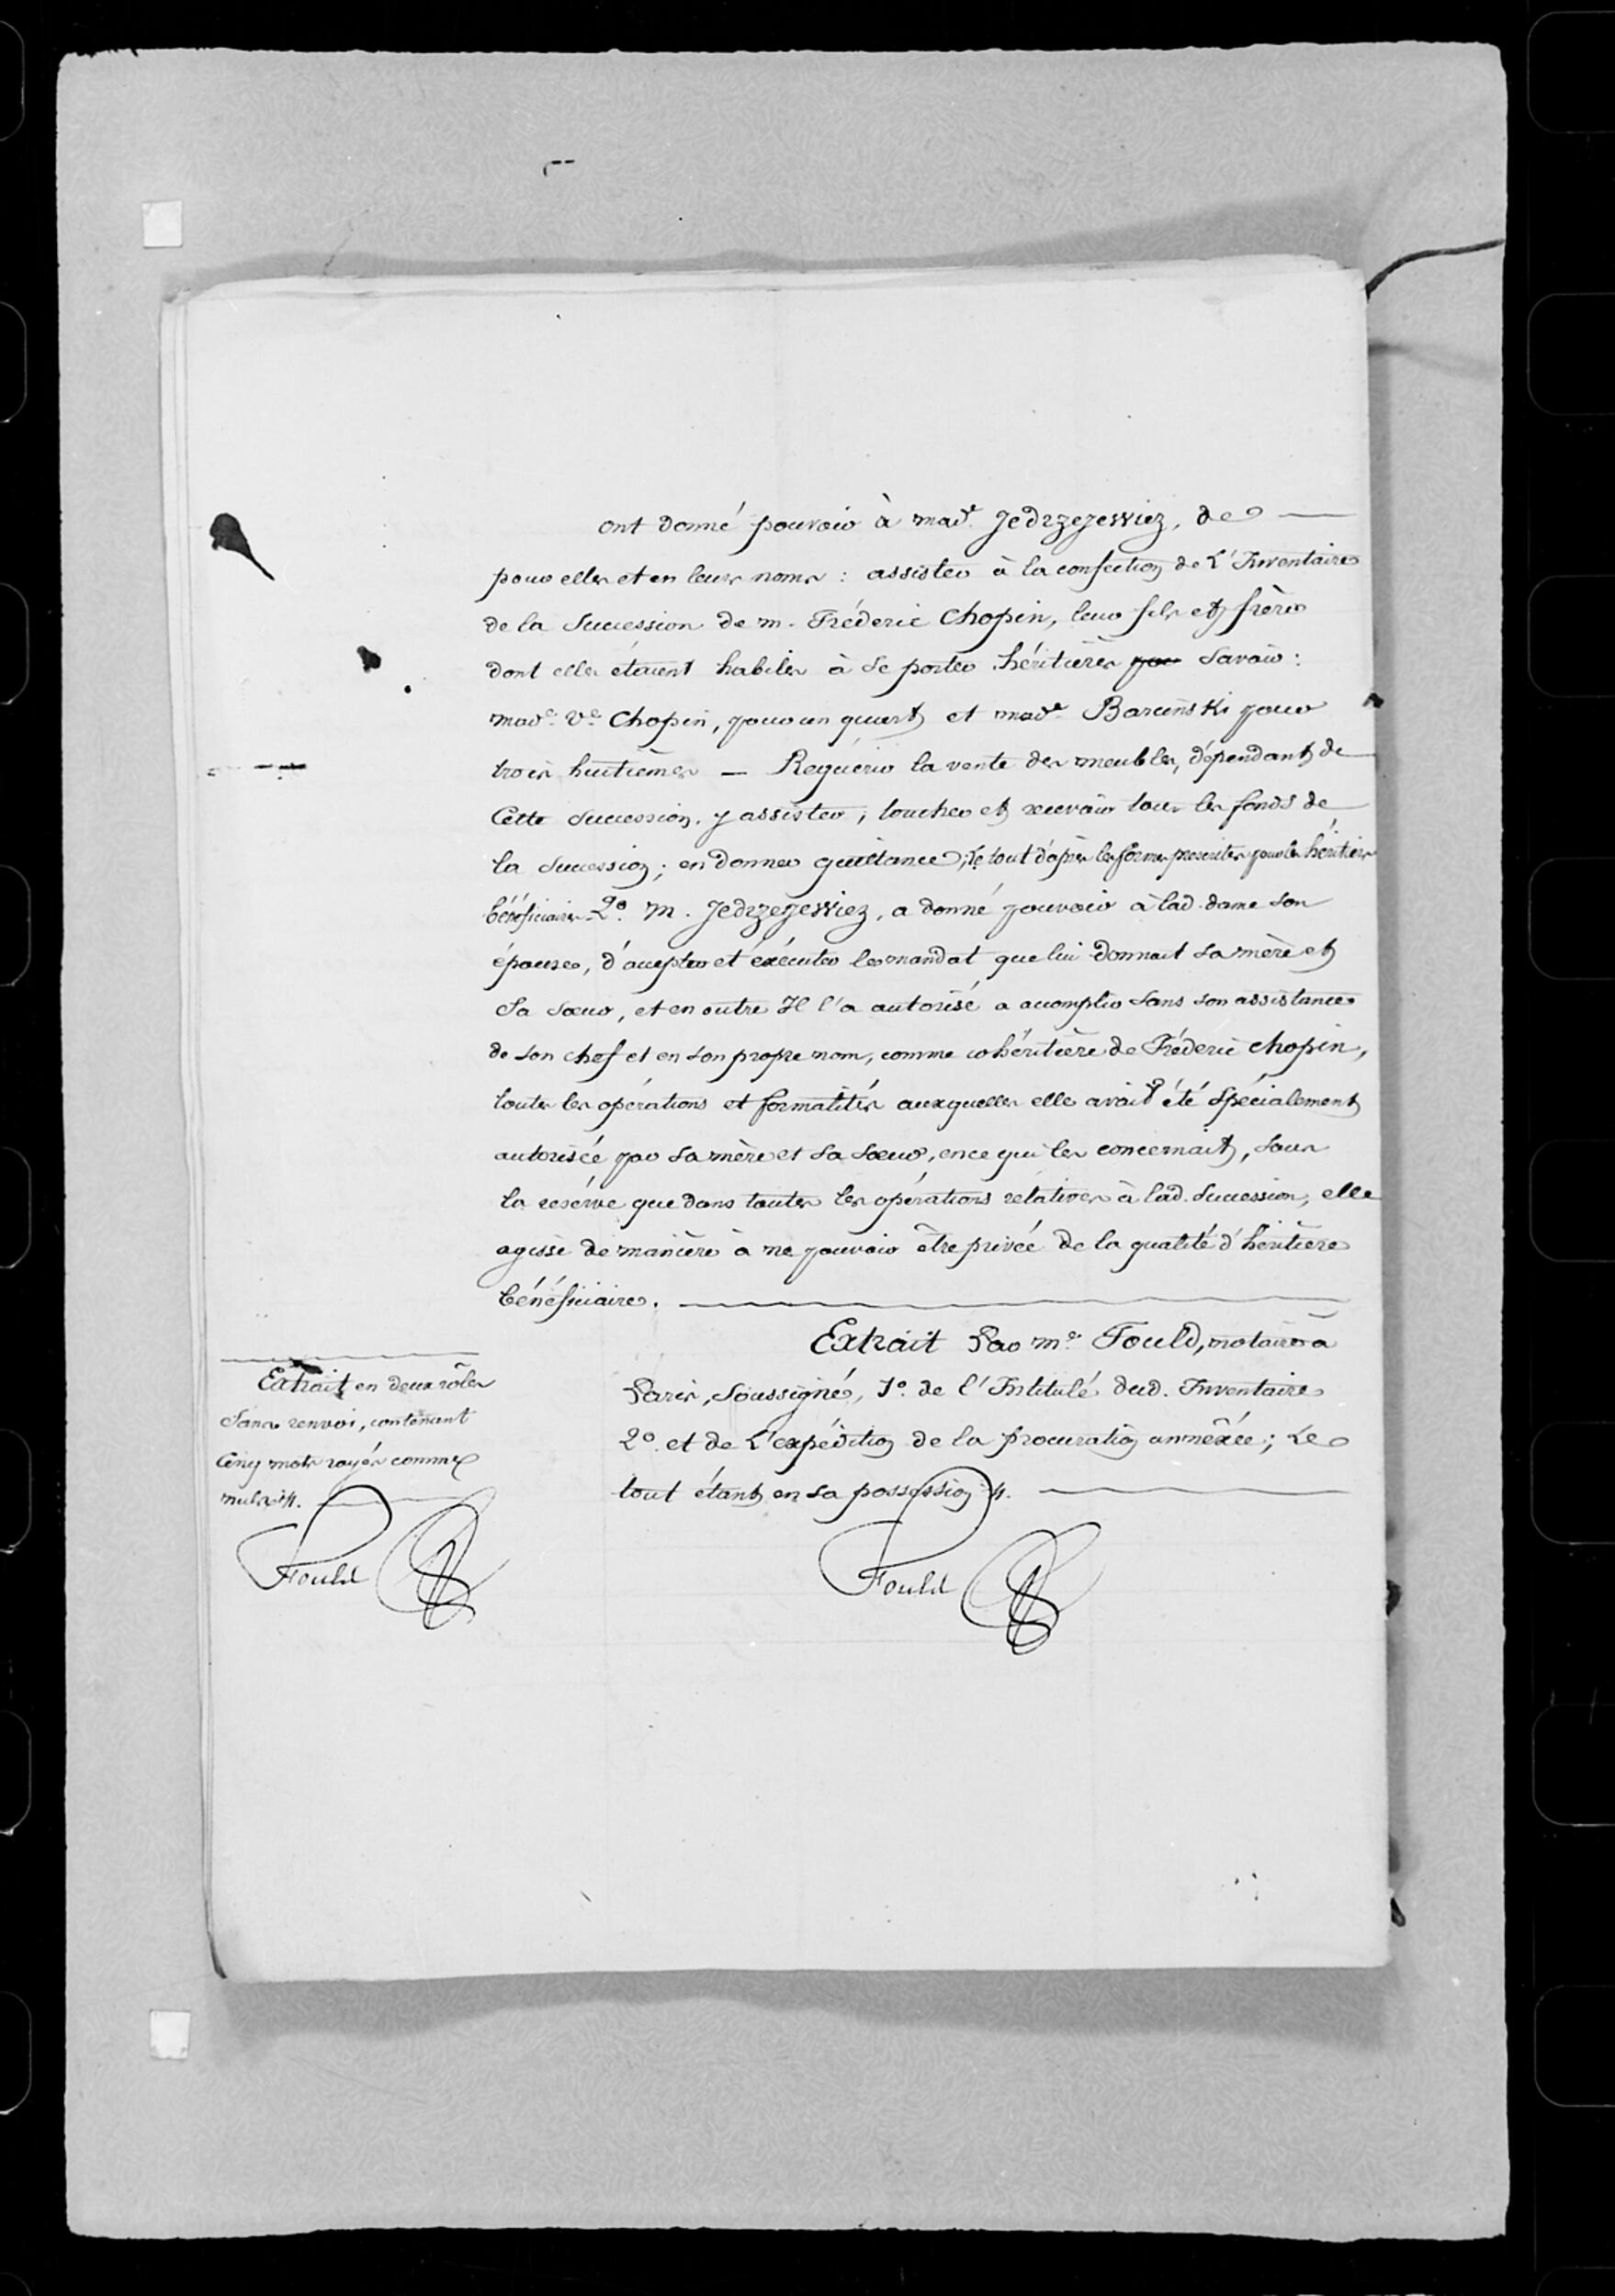 ont donné pouvoir à mad.e Jedrzejewiez, de
pour elles et en leurs noms : assister à la confection de L'Inventaire
de la Succession de m. Fréderic Chopin, leur fils et frère
dont elles étaient habiles à se porter héritières par Savoir :
mad.e V.e Chopin, pour un quart et mad.e Barcinski pour
trois huitièmes — Requérir la vente des meubles, dépendant de
Cette succession, y assister ; toucher et recevoir tous les fonds de
la Succession ; en donner quittance ; le tout d'après les formes prescrites pour les héritiers
bénéficiaires 2.o M. Jedrzejewiez, a donné pouvoir à lad. dame son
épouse, d'accepter et éxécuter le mandat que lui donnait sa mère et
Sa sœur, et en outre Il l'a autorisé a accomplir sans son assistance
de son chef et en son propre nom, comme cohéritière de Fréderic Chopin,
toutes les opérations et formalités auxquelles elle avait été Spécialement
autorisée par sa mère et sa sœur, en ce qui les concernait, sous
la resérve que dans toutes les opérations relatives à lad. Succession, elle
agisse de manière à ne pouvoir être privée de la qualité d'héritière
bénéficiaire.
Extrait Par m.e Fould, notaire à
Paris, Soussigné, 1.o de l'Intitulé dud. Inventaire
2.o et de L'expédition de la procuration annéxée ; Le
tout étant en sa possession ./.
Fould
Extrait en deux rôles
Sans renvoi, contenant
Cinq mots rayés comme
nuls ./.
Fould